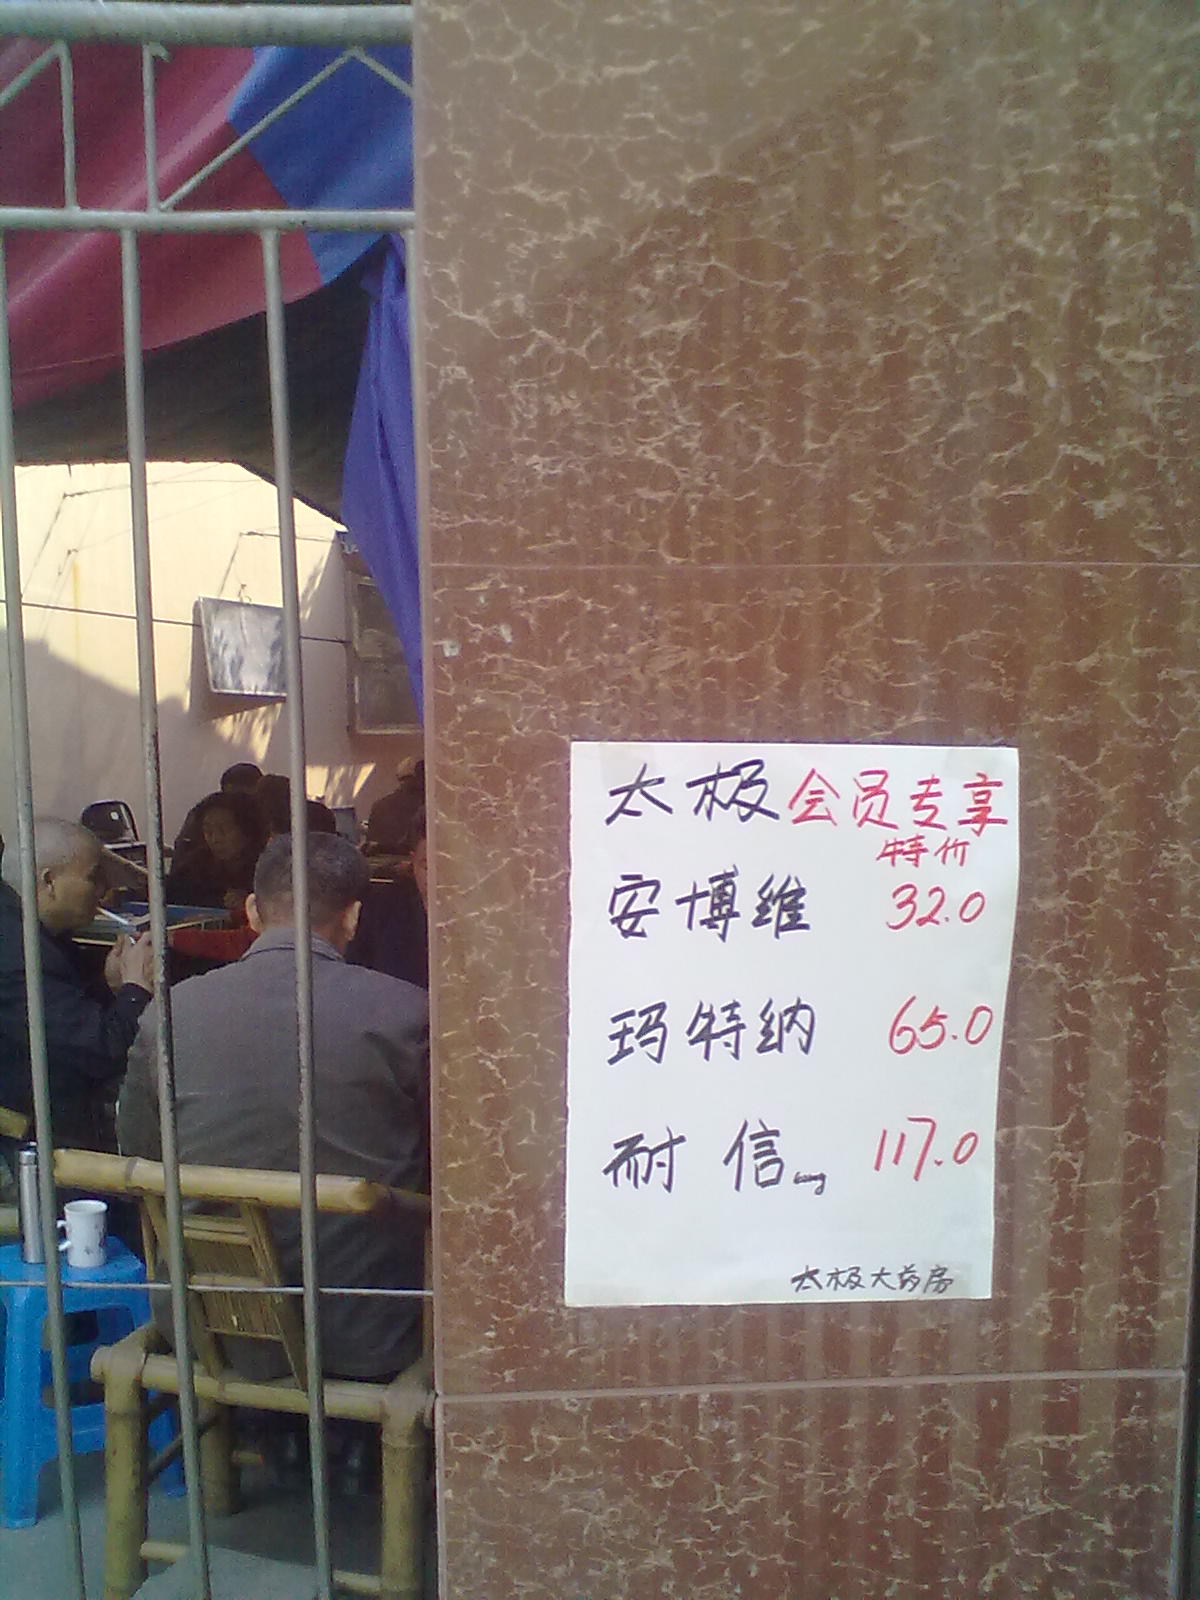 太极会员专享
特价
安博维 32.0
玛特纳 65.0
耐信 117.0
太极大药房